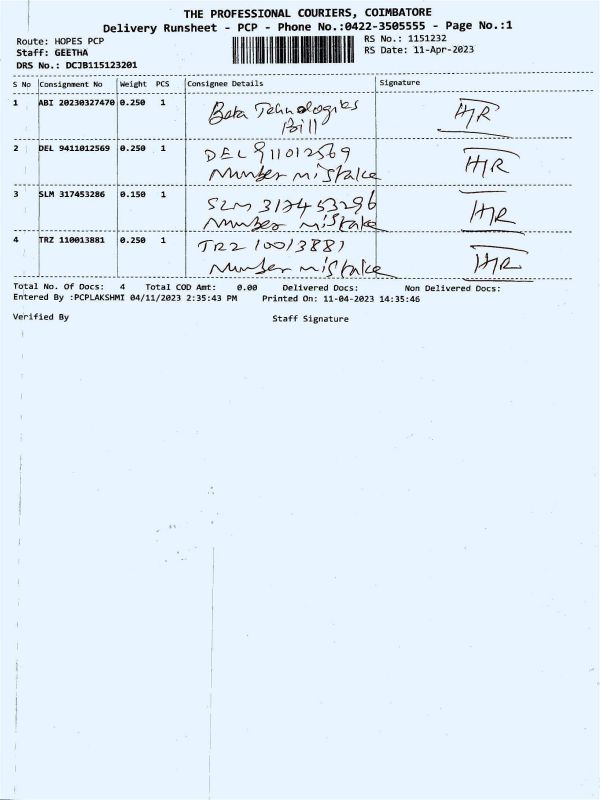 THE PROFESSIONAL COURIERS, COIMBATORE
Delivery Runsheet - PCP - Phone No.:0422-3505555 - Page No.:1
Route: HOPES PCP
Staff: GEETHA
DRS No.: DCJB115123201
RS No.: 1151232
RS Date: 11-Apr-2023
S No Consignment No Weight PCS Consignee Details Signature
1 ABI 20230327470 0.250 1 Beta Tehnologies HR
Bill
2 DEL 9411012569 0.250 1 DEL 911012569 HR
Number mistake
3 SLM 317453286 0.150 1 SLM 317453296 HR
Number mistake
4 TRZ 110013881 0.250 1 TRZ 10013881 HR
Number mistake
Total No. Of Docs: 4 Total COD Amt: 0.00 Delivered Docs: Non Delivered Docs:
Entered By :PCPLAKSHMI 04/11/2023 2:35:43 PM Printed On: 11-04-2023 14:35:46
Verified By Staff Signature